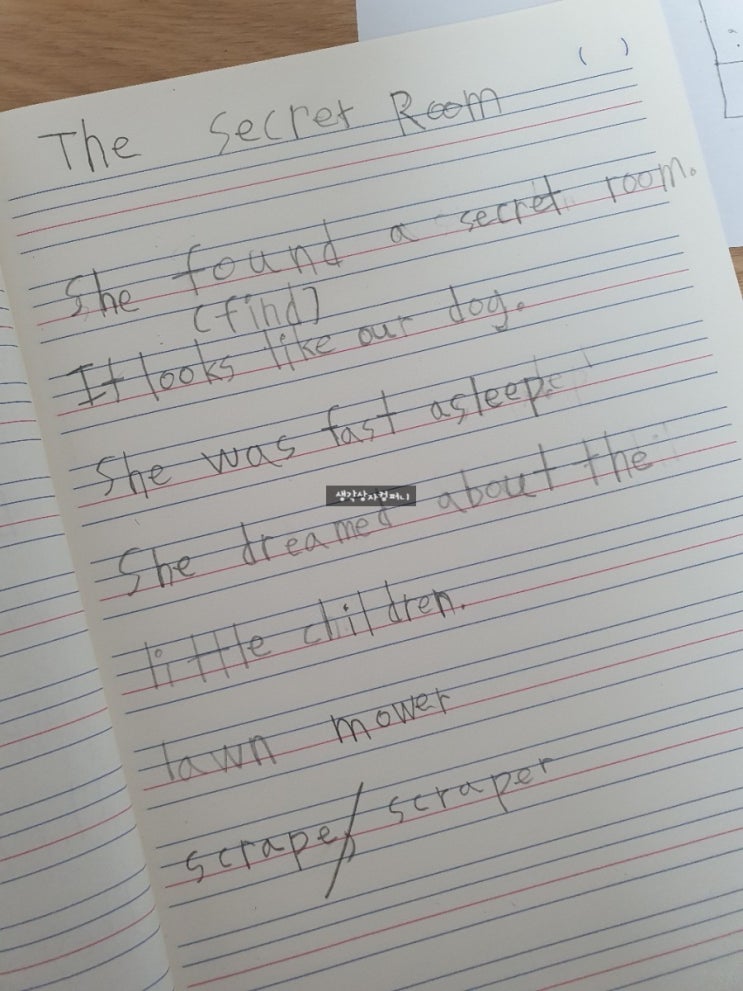 ( )
The Secret Room
She found a secret room.
(find)
It looks like our dog.
She was fast asleep.
생각상자컴퍼니
She dreamed about the
little children.
lawn mower
scrape/ scraper